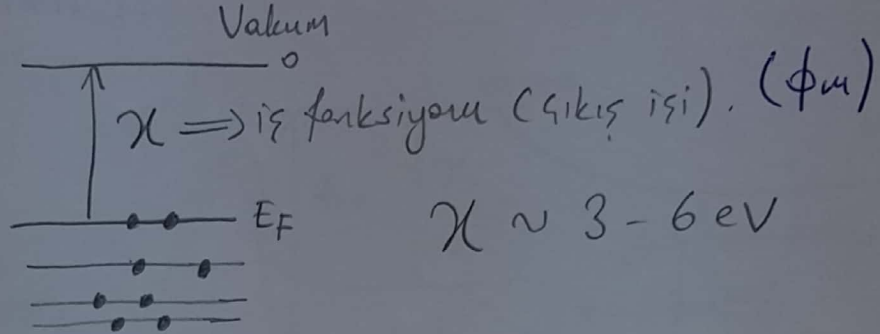 Vakum
0
χ ⇒ iş fonksiyonu (çıkış işi). (ϕm)
EF
χ ~ 3 - 6 eV